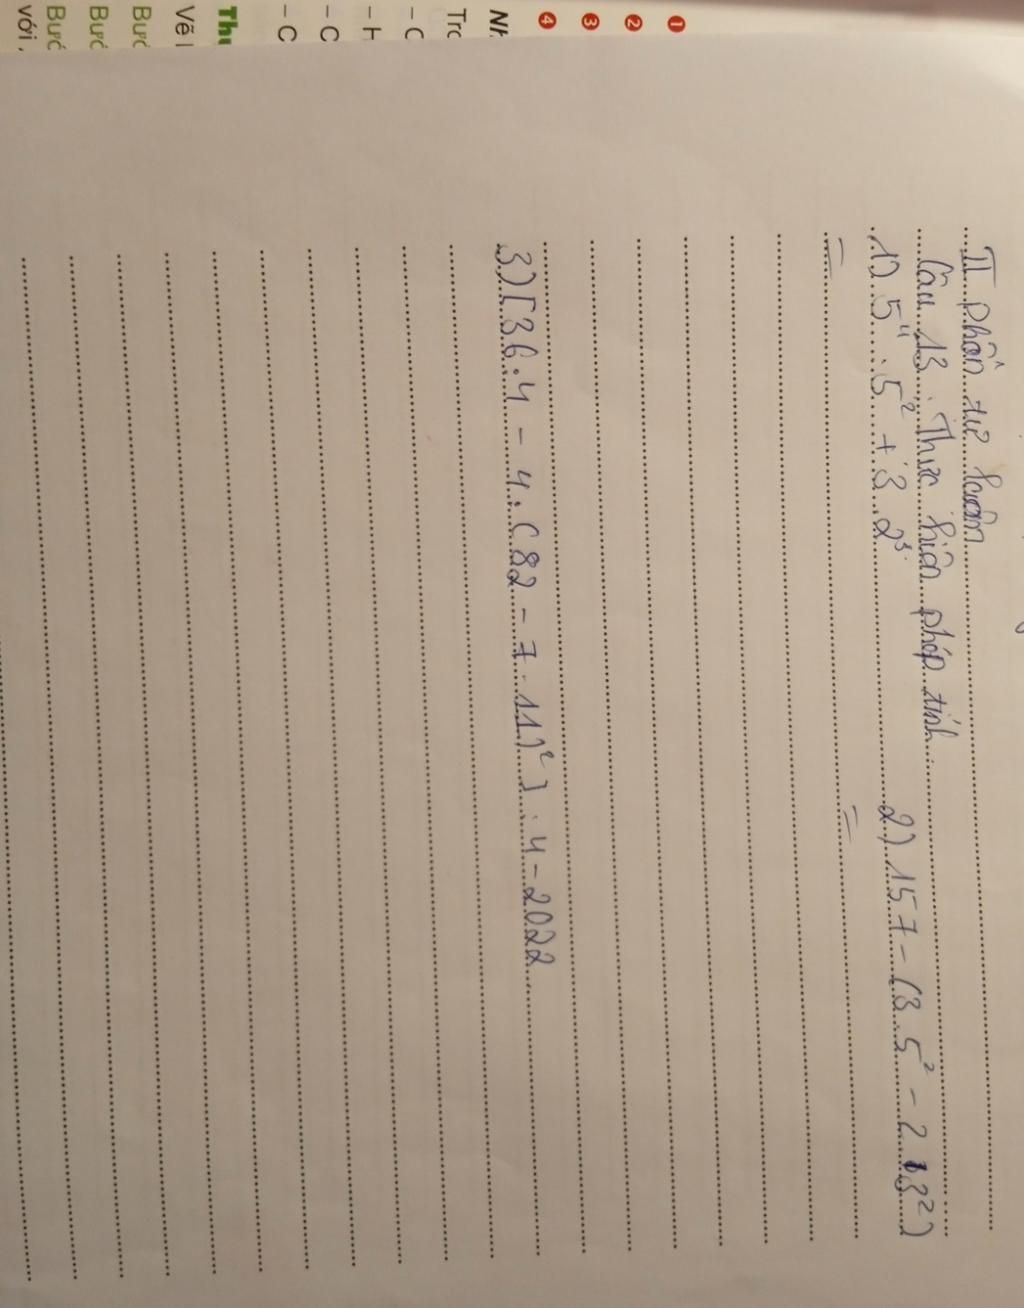 II phần tự luận
Câu 13. Thực hiện phép tính
1) 5⁴ : 5² + 3.2³ 2) 157 - (3.5² - 2.3²)
= =
3) [36.4 - 4.(82 - 7.11)²] : 4 - 2022
1
2
3
4
Nh
Trc
- C
- H
- C
- C
Thu
Vẽ
Bướ
Bướ
Bướ
với,